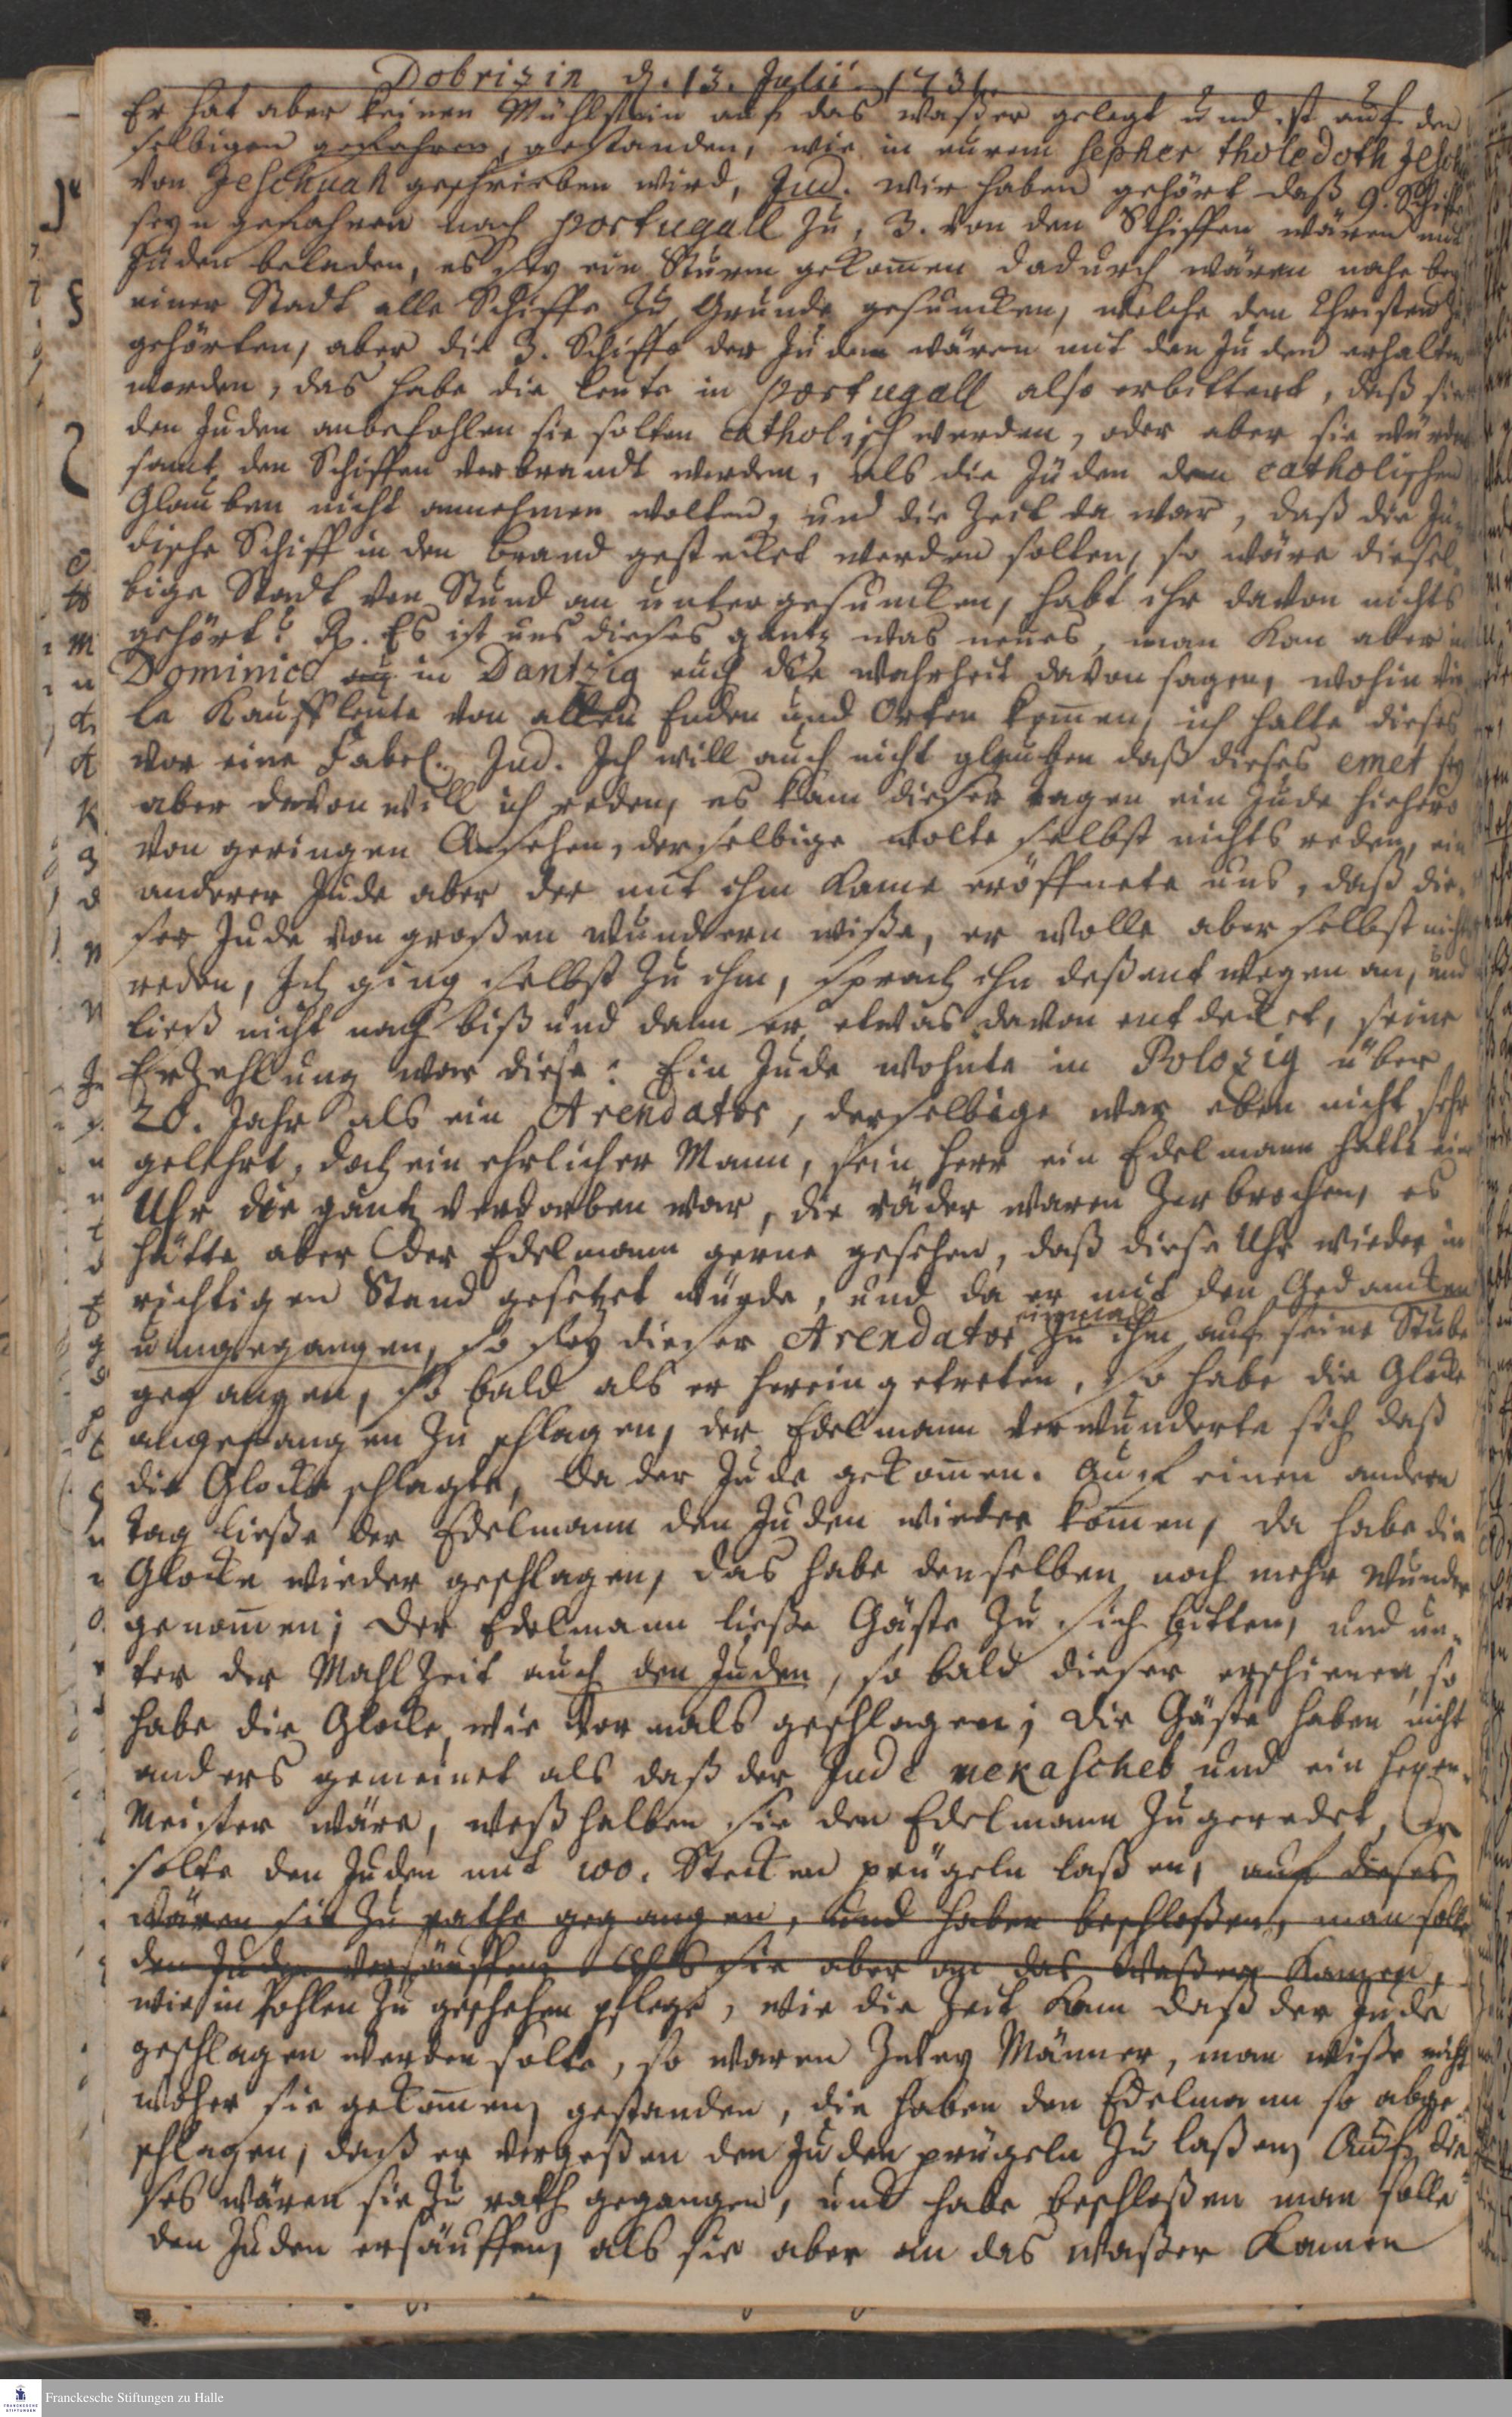 Dobrizin d. 13. Julii. 1731.
Er hat aber keinen Mühlstein auf das waßer gelegt und ist auf den
selbigen gefahren, gestanden, wie in eurem sepher tholedoth Jesch
von Jeschuah geschrieben wird, Jud. Wir haben gehört daß 9. Schiffe
seyn gefahren nach portugall zu, 3. von den Schiffen wären mit
Juden beladen, es sey ein Sturm gekom̄en dadurch wären nahe bey
einer Stadt alle Schiffe zu Grunde gesuncken, welche den Christen zu
gehörten, aber die 3. Schiffe der Juden wären mit den Juden erhalten
worden, das habe die leute in portugall also erbittert, daß sie
den Juden anbefohlen sie solten catholisch werden, oder aber sie würden
samt den Schiffen verbrandt werden, als die Jüden den catholischen
Glauben nicht annehmen wolten, und die Zeit da war, daß die Jü-
dische Schiff in den brand gestecket werden solten, so wäre diesel-
bige Stadt von Stund an untergesuncken, habt ihr davon nichts
gehört? R. Es ist uns dieses gantz was neues, man kan aber in
Dominico in Dantzig euch die wahrheit davon sagen, wohin vie
le Kauffleute von allen Enden und Orten kom̄en, ich halte dieses
vor eine Fabel. Jud. Ich will auch nicht glauben daß dieses emet sey
aber davon will ich reden, es kam dieser tagen ein Jude hiehero
von geringen Ansehen, derselbige wolte selbst nichts reden, ein
anderer Jude aber der mit ihm kame eröffnete uns, daß die-
ser Jude von großen wundern wiße, er wolle aber selbst nichts
reden, Ich ging selbst zu ihm, sprach ihn deßent wegen an, und
ließ nicht nach biß und dann er etwas davon entdecket, seine
Erzehlung war diese: Ein Jude wohnte in Polozig über
20. Jahr als ein Arendator, derselbige war eben nicht sehr
gelehrt, doch ein ehrlicher Mann, sein herr ein Edelmann hatte ein
Uhr die gantz verdorben war, die räder waren zerbrochen, es
hätte aber der Edelmann gerne gesehen, daß diese Uhr wieder in
richtigen Stand gesetzet würde, und da er mit den Gedancken
umgegangen, so sey dieser Arendator einmal zu ihm auf seine Stube
gegangen, so bald als er hereingetreten, so habe die Glocke
angefangen zu schlagen, der Edelmann verwunderte sich daß
die Glocke schlagte, da der Jude gekom̄en. Auf einen andern
tag ließe der Edelmann den Juden wieder kom̄en, da habe die
Glocke wieder geschlagen, das habe denselben noch mehr wunder
genom̄en; Der Edelmann ließe Gäste zu sich bitten, und un-
ter der Mahlzeit auch den Juden, so bald dieser erschienen, so
habe die Glocke, wie vormals geschlagen; Die Gäste haben nicht
anders gemeinet als daß der Jude mekascheb und ein hexen-
Meister wäre, weßhalben sie den Edelmann zugeredet, Er
solte den Juden mit 100. Stecken prügeln laßen, auf dieses
wären sie zu rathe gegangen, und haben beschloßen, man solle
den Juden ersäuffen. Als sie aber an das Waßer kamen,
wie in Pohlen zu geschehen pflege, wie die Zeit kam daß der Jude
geschlagen werden solte, so waren Zwey Männer, man wiße nicht
woher sie gekom̄en, gestanden, die haben den Edelmann so abge-
schlagen, daß er vergeßen den Juden prügeln zu laßen, Auf die
ses wären sie zu rath gegangen, und habe beschloßen man solle
den Juden ersäuffen, als sie aber an das waßer kamen
Franckesche Stiftungen zu Halle